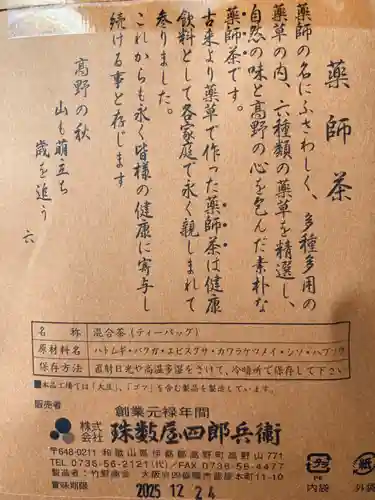 薬師茶
薬師の名にふさわしく、多種多用の
薬草の内、六種類の薬草を精選し、
自然の味と高野の心を包んだ素朴な
薬師茶です。
古来より薬草で作った薬師茶は健康
飲料として各家庭で永く親しまれて
参りました。
これからも永く皆様の健康に寄与し
続ける事と存じます
高野の秋
山も萌立ち
歳を追う
六
名称 混合茶(ティーバッグ)
原材料名 ハトムギ・バクガ・エビスグサ・カワラケツメイ・シソ・ハブソウ
保存方法 直射日光や高温多湿をさけて、冷暗所で保存して下さい
■本品工場では「大豆」、「ゴマ」を含む製品を製造しています。
販売者
創業元禄年間
株式会社 珠数屋四郎兵衛
〒648-0211 和歌山県伊都郡高野町高野山771
TEL 0736-56-2121(代)/FAX 0736-56-4477
製造者:
賞味期限 2025 12 24
PE
内袋
紙
外袋